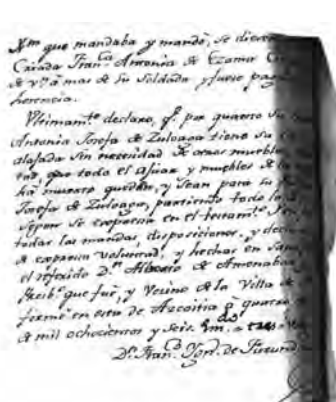 Ytm que mandaba y mandó, se diesen
Criada Fran.ca Antonia de Ezama
de v.n a mas de su Soldada, y fuese pag
herencia.
Ultimam.te declaro, q.e por quanto su
Antonia Josefa de Zuloaga tiene su
alajada sin necesidad de otros mueble
tad, que todo el ajuar y muebles de la
ha muerto quedan, y sean para su
Josefa de Zuloaga, partiendo todo lo
segun se expresa en el testam.to
todas las mandas, disposiciones, y decla
de expresa voluntad, y hechas en san
el referido D.n Alberto de Amenabar
Escrib.o que fué, y Vecino de la Villa de
firmé en esta de Azcoitia á quatro
de mil ochocientos y seis. Em.do
D.n Fran.co Ygn.o de